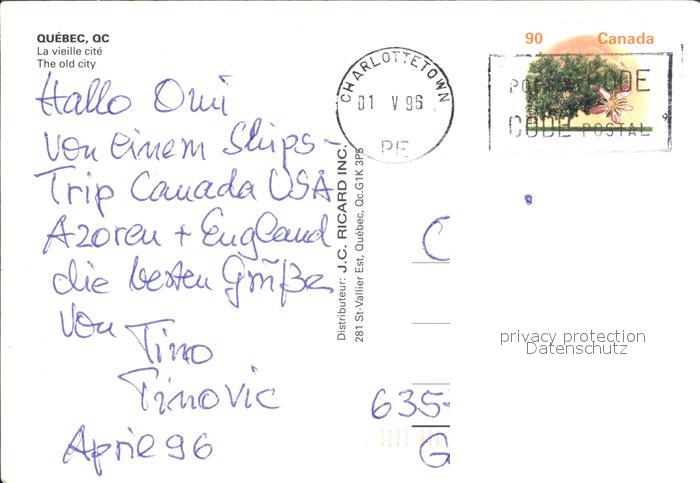 QUÉBEC, QC
La vieille cité
The old city
Hallo Omi
von einem Ships-
Trip Canada USA
Azoren + England
die besten Grüße
von Tino
Tinovic
April 96
Distributeur: J.C. RICARD INC.
281 St-Vallier Est, Québec, Qc.G1K 3P5
CHARLOTTETOWN
01 V 96
PE
90 Canada
CODE
CODE POSTAL
C
635
G
privacy protection
Datenschutz